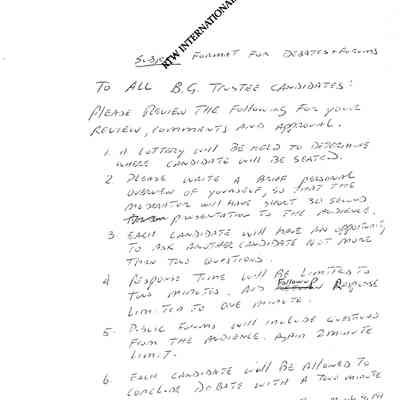 RTW INTERNATIONAL
Subject FORMAT FOR DEBATES + FORUMS
TO ALL B.G. TRUSTEE CANDIDATES:
PLEASE REVIEW THE FOLLOWING FOR YOUR
REVIEW, COMMENTS AND APPROVAL.
1. A LOTTERY WILL BE HELD TO DETERMINE
WHERE CANDIDATE WILL BE SEATED.
2. PLEASE WRITE A BRIEF PERSONAL
OVERVIEW OF YOURSELF, SO THAT THE
MODERATOR WILL HAVE SHORT 30 SECOND
PRESENTATION TO THE AUDIENCE.
3. EACH CANDIDATE WILL HAVE AN OPPORTUNITY
TO ASK ANOTHER CANDIDATE NOT MORE
THAN TWO QUESTIONS.
4. RESPONSE TIME WILL BE LIMITED TO
TWO MINUTES. AND Followup RESPONSE
LIMITED TO ONE MINUTE.
5. PUBLIC FORUMS WILL INCLUDE QUESTIONS
FROM THE AUDIENCE. AGAIN 2 MINUTE
LIMIT.
6. EACH CANDIDATE WILL BE ALLOWED TO
CONCLUDE DEBATE WITH A TWO MINUTE